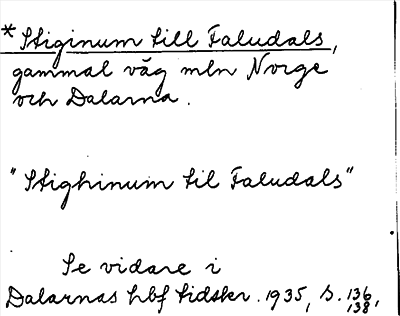 *Stiginum till Faludals,
gammal väg mln Norge
och Dalarna.
"Stighinum til Faludals"
Se vidare i
Dalarnas hbf tidskr. 1935, s. 136,
138,